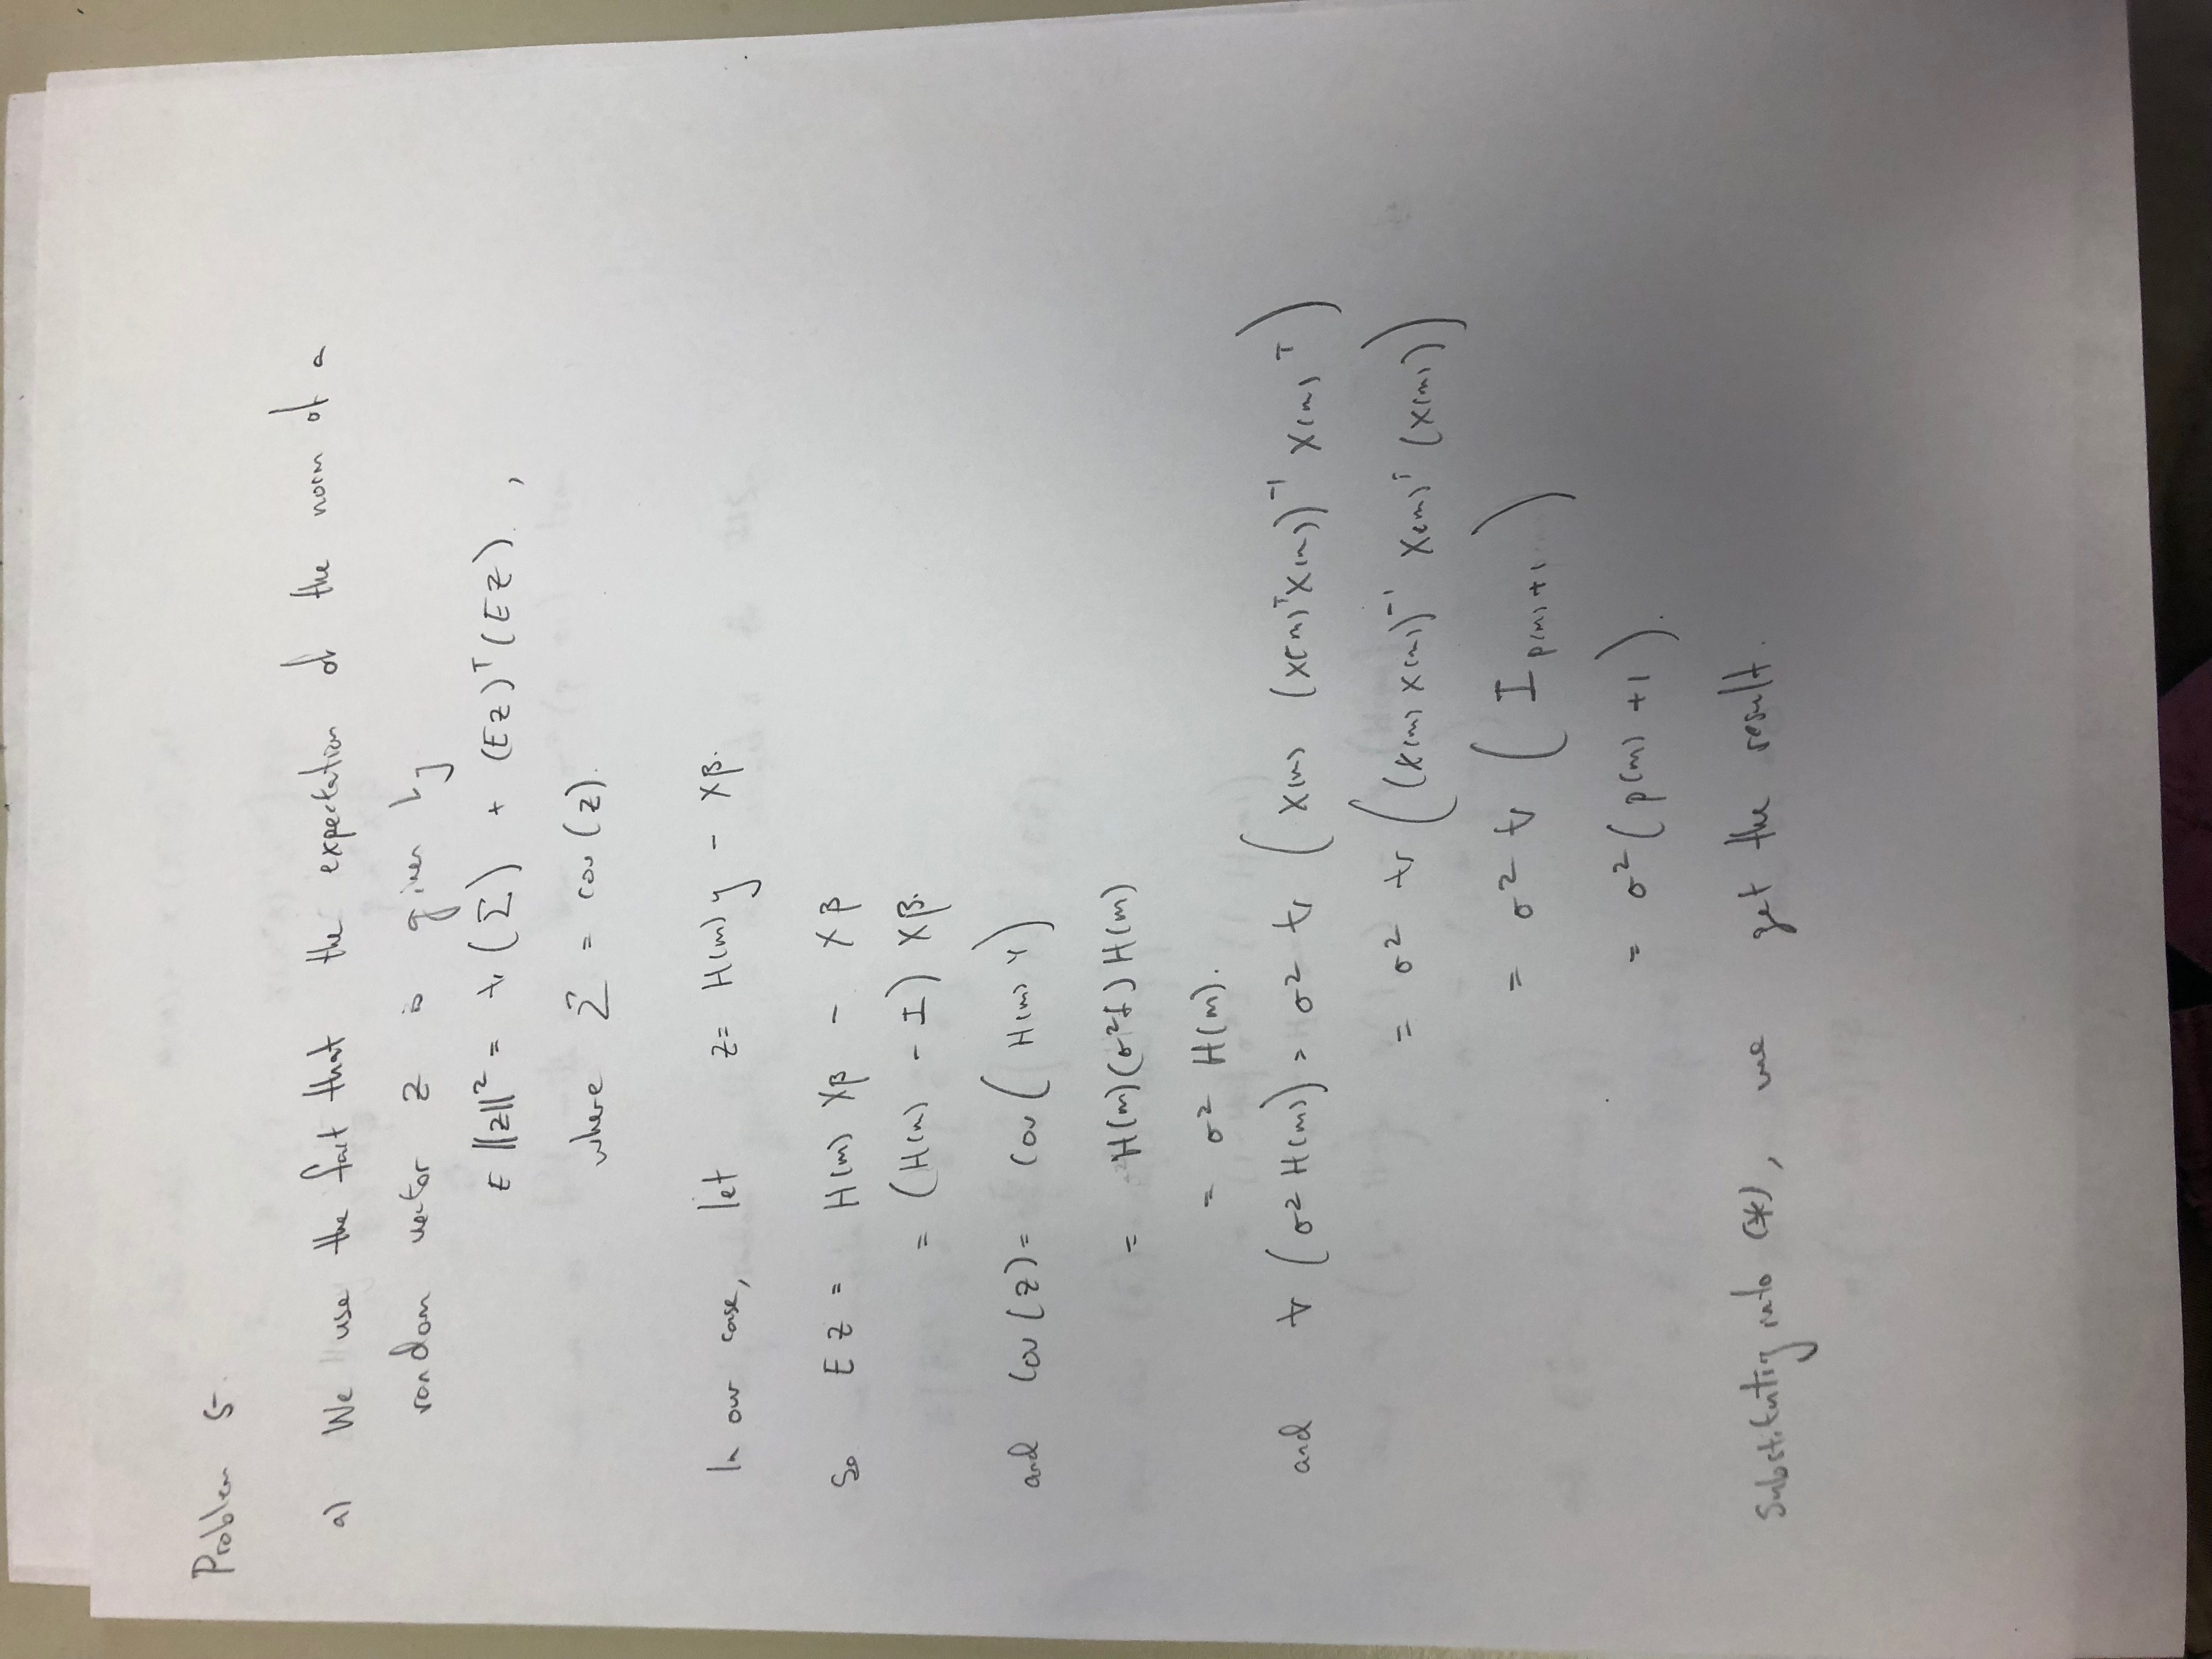 Problem 5.
a) We use the fact that the expectation of the norm of a
random vector z is given by
E ||z||² = tr (Σ) + (Ez)ᵀ(Ez),
where Σ = cov(z).
In our case, let z = H(m) y - Xβ.
So Ez = H(m) Xβ - Xβ
= (H(m) - I) Xβ.
and Cov(z) = Cov( H(m) Y )
= H(m)(σ²I) H(m)
= σ² H(m).
and tr (σ² H(m)) = σ² tr ( X(m) (X(m)ᵀX(m))⁻¹ X(m)ᵀ )
= σ² tr ( (X(m) X(m))⁻¹ X(m)ᵀ (X(m)) )
= σ² tr ( I p(m)+1 )
= σ² ( p(m) + 1 ).
Substituting into (*), we get the result.